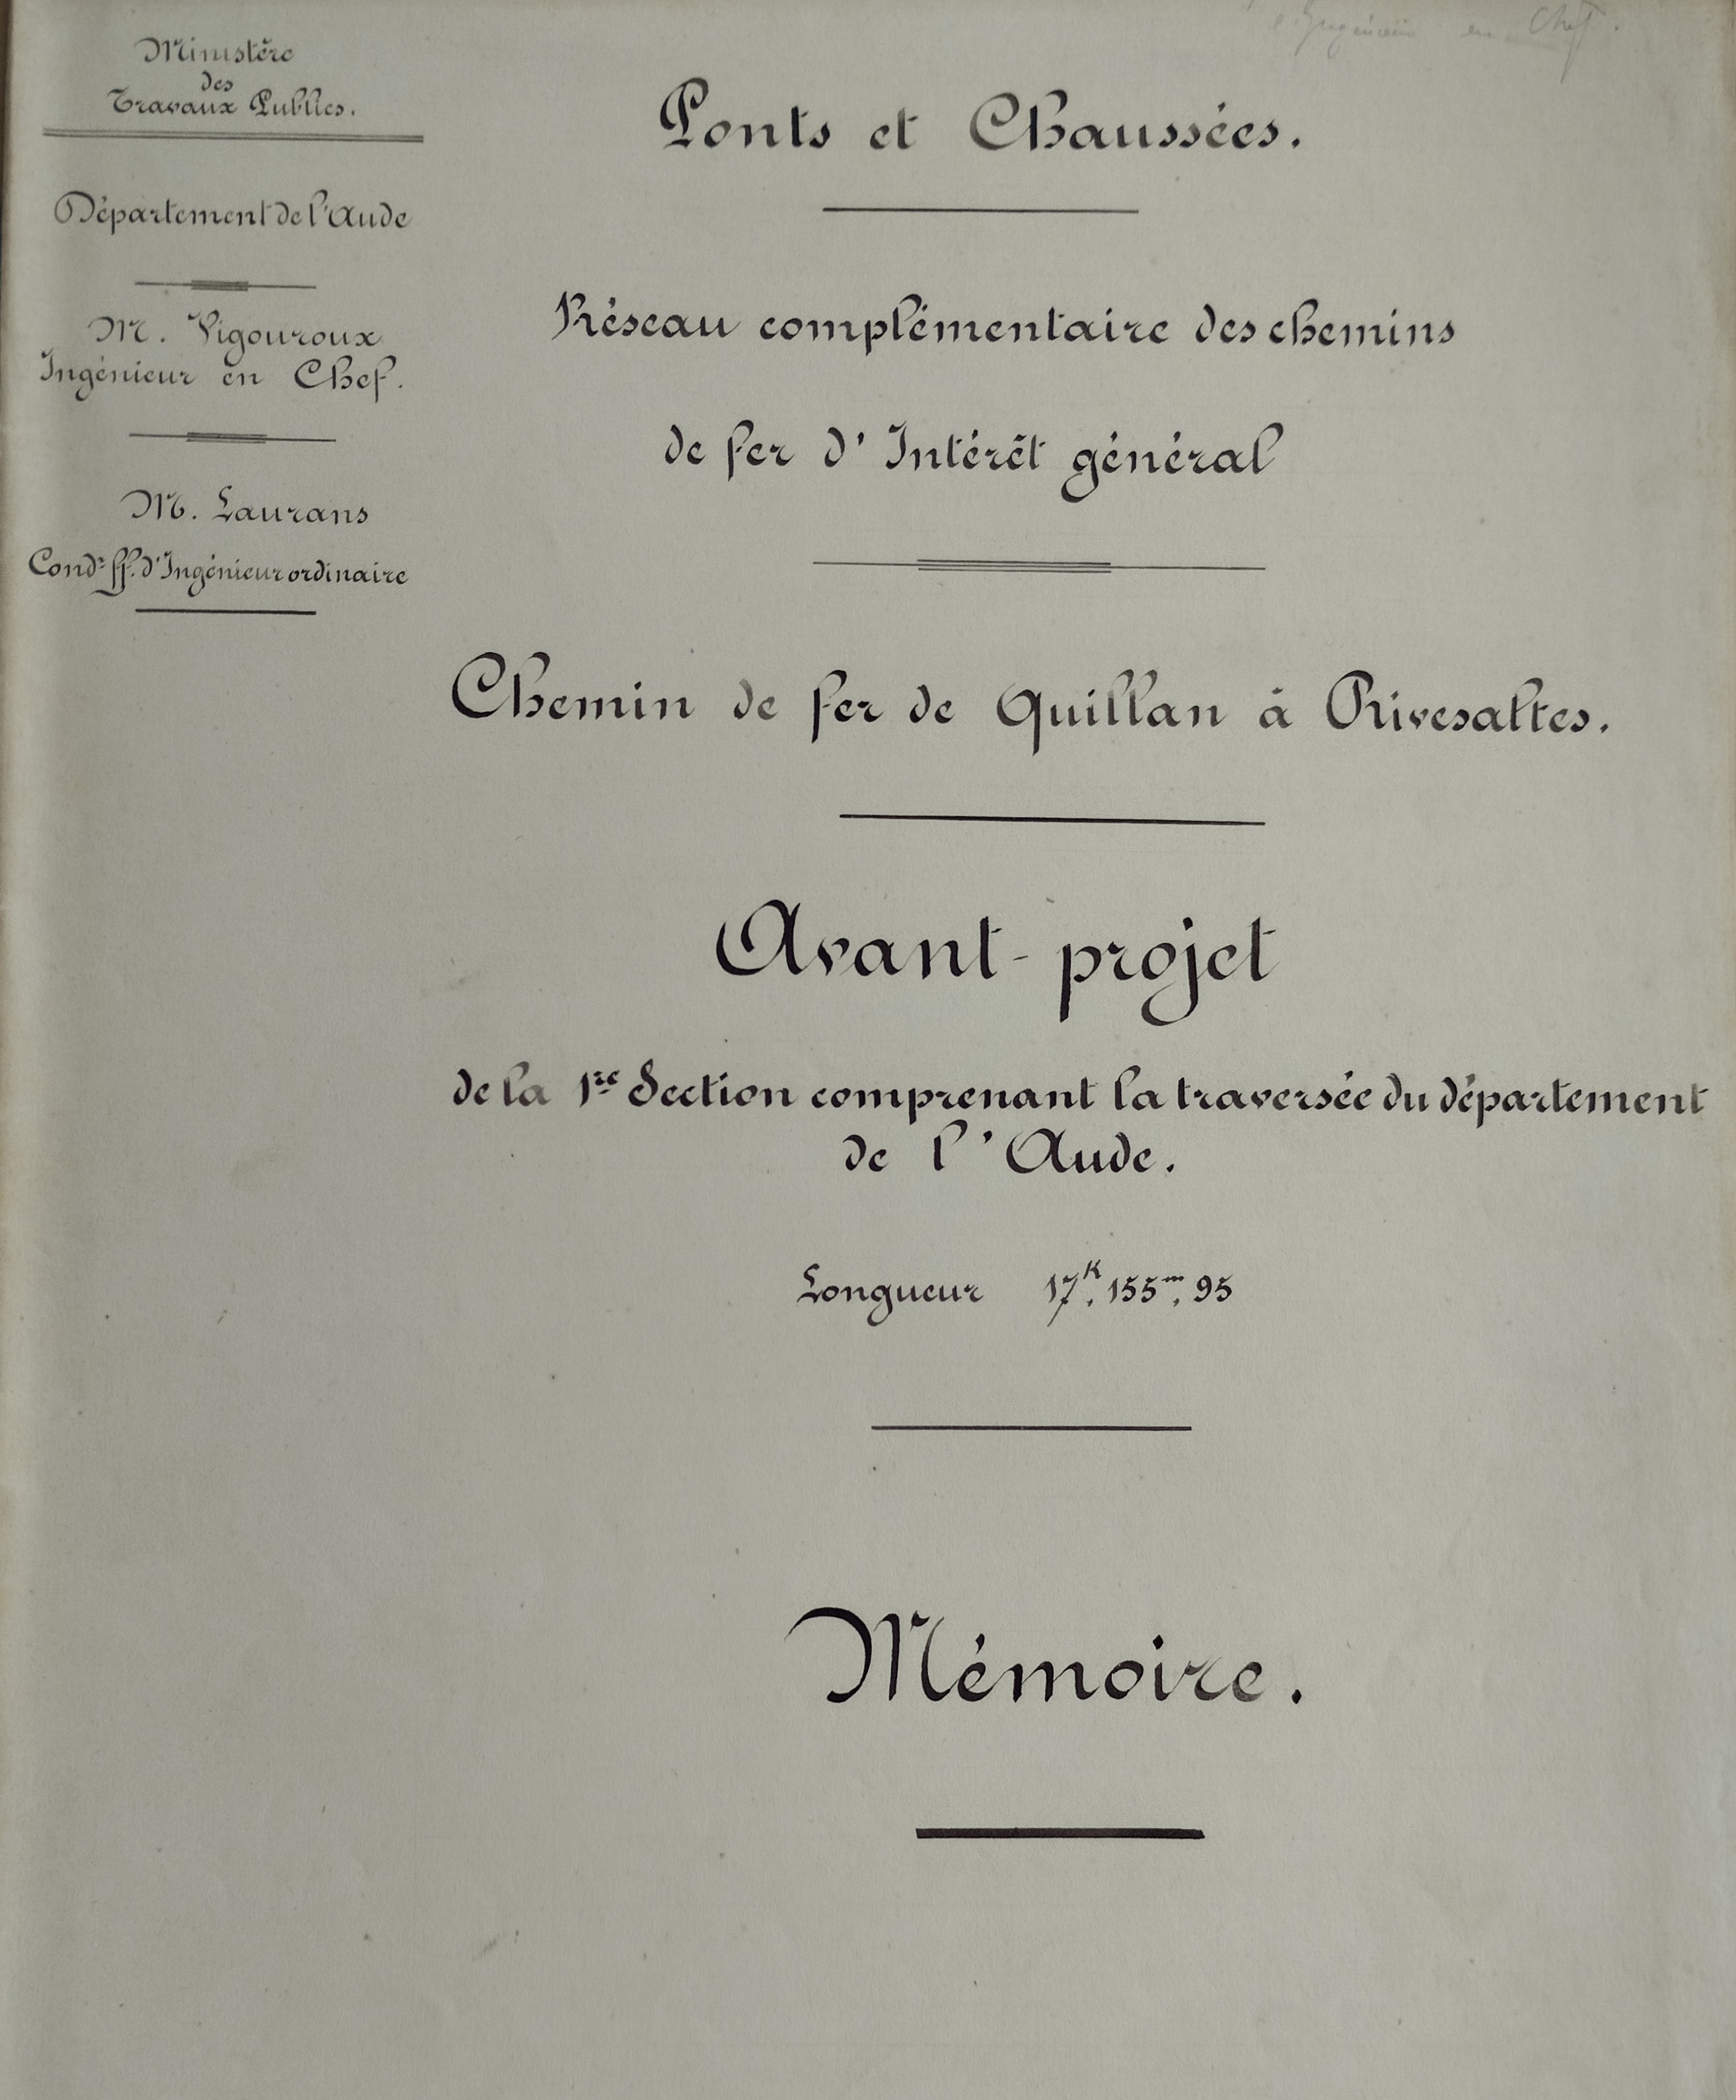 Ministère
des
Travaux Publics.
Département de l'Aude
M. Vigouroux
Ingénieur en Chef.
M. Laurans
Condr ff. d'Ingénieur ordinaire
l'Ingénieur en Chef.
Ponts et Chaussées.
Réseau complémentaire des chemins
de fer d'Intérêt général
Chemin de fer de Quillan à Rivesaltes.
Avant-projet
de la 1re Section comprenant la traversée du département
de l'Aude.
Longueur 17K,155m,95
Mémoire.